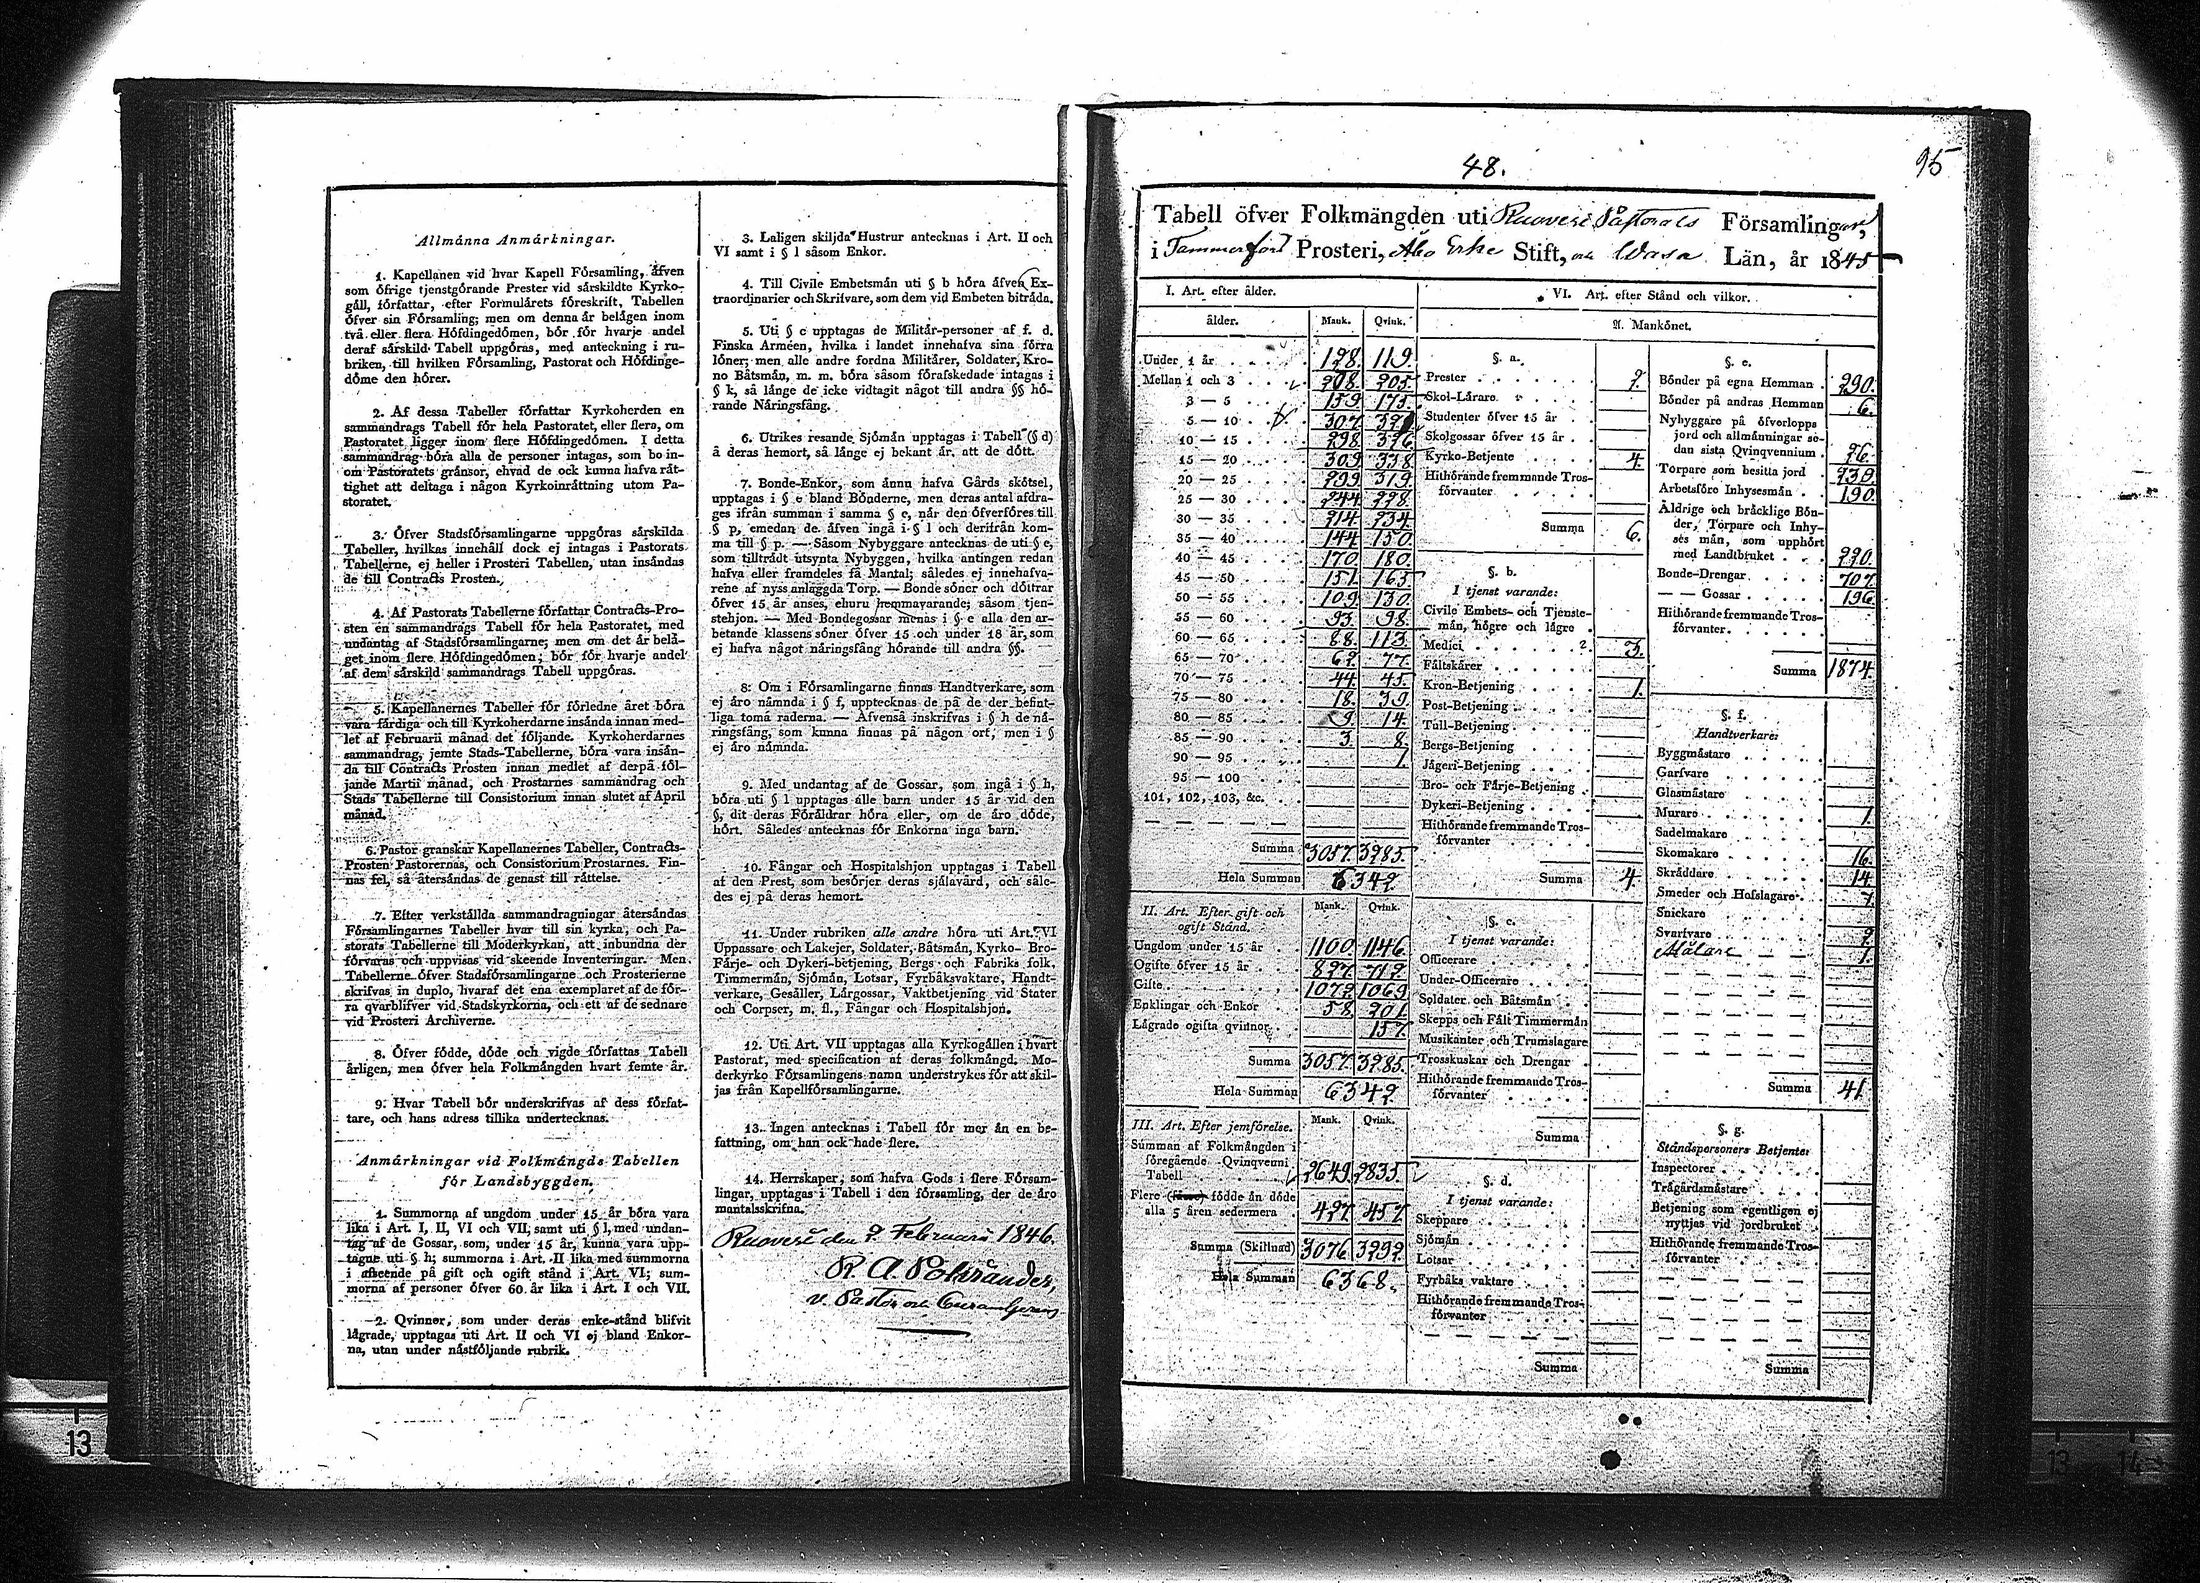 Allmänna Anmärkningar.
1. Kapellanen vid hvar Kapell Församling, äfven
som öfrige tjenstgörande Prester vid särskildte Kyrko-
gäll, författar, efter Formulärets föreskrift, Tabellen
öfver sin Församling; men om denna är belägen inom
två eller flera Höfdingedömen, bör för hvarje andel
deraf särskild Tabell uppgöras, med anteckning i ru-
briken, till hvilken Församling, Pastorat och Höfdinge-
döme den hörer.
2. Af dessa Tabeller författar Kyrkoherden en
sammandrags Tabell för hela Pastoratet, eller flera, om
Pastoratet ligger inom flere Höfdingedömen. I detta
sammandrag böra alla de personer intagas, som bo in-
om Pastoratets gränsor, ehvad de ock kunna hafva rät-
tighet att deltaga i någon Kyrkoinrättning utom Pa-
storatet.
3. Öfver Stadsförsamlingarne uppgöras särskilda
Tabeller, hvilkas innehåll dock ej intagas i Pastorats
Tabellerne, ej heller i Prosteri Tabellen, utan insändas
de till Contracts Prosten.
4. Af Pastorats Tabellerne författar Contracts-Pro-
sten en sammandrags Tabell för hela Pastoratet, med
undantag af Stadsförsamlingarne; men om det är belä-
get inom flere Höfdingedömen, bör för hvarje andel
af dem särskild sammandrags Tabell uppgöras.
5. Kapellanernes Tabeller för förledne året böra
vara färdiga och till Kyrkoherdarne insända innan med-
let af Februarii månad det följande. Kyrkoherdarnes
sammandrag, jemte Stads-Tabellerne, böra vara insän-
da till Contracts Prosten innan medlet af derpå föl-
jande Martii månad, och Prostarnes sammandrag och
Stads Tabellerne till Consistorium innan slutet af April
månad.
6. Pastor granskar Kapellanernes Tabeller, Contracts-
Prosten Pastorernas, och Consistorium Prostarnes. Fin-
nas fel, så återsändas de genast till rättelse.
7. Efter verkställda sammandragningar återsändas
Församlingarnes Tabeller hvar till sin kyrka, och Pa-
storats Tabellerne till Moderkyrkan, att inbundna der
förvaras och uppvisas vid skeende Inventeringar. Men
Tabellerne öfver Stadsförsamlingarne och Prosterierne
skrifvas in duplo, hvaraf det ena exemplaret af de för-
ra qvarblifver vid Stadskyrkorna, och ett af de sednare
vid Prosteri Archiverne.
8. Öfver födde, döde och vigde författas Tabell
årligen, men öfver hela Folkmängden hvart femte år.
9. Hvar Tabell bör underskrifvas af dess förfat-
tare, och hans adress tillika undertecknas.
Anmärkningar vid Folkmängds-Tabellen
för Landsbyggden.
1. Summorna af ungdom under 15 år böra vara
lika i Art. I, II, VI och VII, samt uti § l, med undan-
tag af de Gossar, som, under 15 år, kunna vara upp-
tagne uti § h; summorna i Art. II lika med summorna
i afseende på gift och ogift stånd i Art. VI; sum-
morna af personer öfver 60 år lika i Art. I och VII.
2. Qvinnor, som under deras enke-stånd blifvit
lägrade, upptagas uti Art. II och VI ej bland Enkor-
na, utan under nästföljande rubrik.
3. Laligen skiljda Hustrur antecknas i Art. II och
VI samt i § l såsom Enkor.
4. Till Civile Embetsmän uti § b höra äfven Ex-
traordinarier och Skrifvare, som dem vid Embeten biträda.
5. Uti § c upptagas de Militär-personer af f. d.
Finska Arméen, hvilka i landet innehafva sina förra
löner; men alle andre fordna Militärer, Soldater, Kro-
no Båtsmän, m. m. böra såsom förafskedade intagas i
§ k, så länge de icke vidtagit något till andra §§ hö-
rande Näringsfång.
6. Utrikes resande Sjömän upptagas i Tabell (§ d)
å deras hemort, så länge ej bekant är, att de dött.
7. Bonde-Enkor, som ännu hafva Gårds skötsel,
upptagas i § e bland Bönderne, men deras antal afdra-
ges ifrån summan i samma § e, når den öfverföres till
§ p, emedan de äfven ingå i § l och derifrån kom-
ma till § p. — Såsom Nybyggare antecknas de uti § e,
som tillträdt utsynta Nybyggen, hvilka antingen redan
hafva eller framdeles få Mantal; således ej innehafva-
rene af nyss anlaggda Torp. — Bonde söner och döttrar
öfver 15 år anses, ehuru hemmavarande, såsom tjen-
stehjon. — Med Bondegossar menas i § e alla den ar-
betande klassens söner öfver 15 och under 18 år, som
ej hafva något näringsfång hörande till andra §§.
8. Om i Församlingarne finnas Handtverkare, som
ej äro nämnda i § f, upptecknas de på de der befint-
liga toma raderna. — Äfvenså inskrifvas i § h de nä-
ringsfång, som kunna finnas på någon ort, men i §
ej äro nämnda.
9. Med undantag af de Gossar, som ingå i § h,
böra uti § l upptagas alle barn under 15 år vid den
§, dit deras Föräldrar höra eller, om de äro döde,
hört. Således antecknas för Enkorna inga barn.
10. Fångar och Hospitalshjon upptagas i Tabell
af den Prest, som besörjer deras själavård, och såle-
des ej på deras hemort.
11. Under rubriken alle andre höra uti Art. VI
Uppassare och Lakejer, Soldater, Båtsmän, Kyrko- Bro-
Färje- och Dykeri-betjening, Bergs- och Fabriks folk,
Timmermän, Sjömän, Lotsar, Fyrbåksvaktare, Handt-
verkare, Gesäller, Lärgossar, Vaktbetjening vid Stater
och Corpser, m. fl., Fångar och Hospitalshjon.
12. Uti Art. VII upptagas alla Kyrkogällen i hvart
Pastorat, med specification af deras folkmängd. Mo-
derkyrko Församlingens namn understrykes för att skil-
jas från Kapellförsamlingarne.
13. Ingen antecknas i Tabell för mer än en be-
fattning, om han ock hade flere.
14. Herrskaper, som hafva Gods i flere Försam-
lingar, upptagas i Tabell i den församling, der de äro
mantalsskrifna.
Ruovesi den 2 Februari 1846.
R A Polviander,
v. Pastor och
48.
95
Tabell öfver Folkmängden uti Ruovesi Pastorats Församlingar,
i Tammerfors Prosteri, Åbo Erke Stift, och Wasa Län, år 1845
I. Art. efter ålder.
ålder. Mank. Qvink.
Under 1 år 128. 119.
Mellan 1 och 3 208. 205.
3 — 5 159 175.
5 — 10 307
10 — 15 298. 326.
15 — 20 309 338.
20 — 25 299 319.
25 — 30 244 228.
30 — 35 214. 234.
35 — 40 144 150.
40 — 45 170 180.
45 — 50 151. 165
50 — 55 109. 130.
55 — 60 93. 98.
60 — 65 88. 113.
65 — 70 62. 77.
70 — 75 44. 45.
75 — 80 18. 39.
80 — 85 9. 14.
85 — 90 3. 8.
90 — 95 1.
95 — 100
101, 102, 103, &c.
Summa 3057. 3285.
Hela Summan 6342
II. Art. Efter gift och
ogift Stånd. Mank. Qvink.
Ungdom under 15 år 1100. 1146.
Ogifte öfver 15 år 827. 712.
Gifte 1072 1069
Enklingar och Enkor 58. 201.
Lägrade ogifta qvinnor 157.
Summa 3057. 3285.
Hela Summan 6342.
III. Art. Efter jemförelse. Mank. Qvink.
Summan af Folkmängden i
föregående Qvinqvenni
Tabell 2649. 2835.
Flere (färre) födde än döde
alla 5 åren sedermera 427. 457.
Summa (Skillnad) 3076 3292.
Hela Summan 6368.
VI. Art. efter Stånd och vilkor.
A. Mankönet.
§. a.
Prester 2.
Skol-Lärare
Studenter öfver 15 år
Skolgossar öfver 15 år
Kyrko-Betjente 4.
Hithörande fremmande Tros-
förvanter
Summa 6.
§. b.
I tjenst varande:
Civile Embets- och Tjenste-
män, högre och lägre
Medici 3.
Fältskärer
Kron-Betjening 1.
Post-Betjening
Tull-Betjening
Bergs-Betjening
Jägeri-Betjening
Bro- och Färje-Betjening
Dykeri-Betjening
Hithörande fremmande Tros-
förvanter
Summa 4.
§. c.
I tjenst varande:
Officerare
Under-Officerare
Soldater och Båtsmän
Skepps och Fält Timmermän
Musikanter och Trumslagare
Trosskuskar och Drengar
Hithörande fremmande Tros-
förvanter
Summa
§. d.
I tjenst varande:
Skeppare
Sjömän
Lotsar
Fyrbåks vaktare
Hithörande fremmande Tros-
förvanter
Summa
§. e.
Bönder på egna Hemman 290.
Bönder på andras Hemman 6.
Nybyggare på öfverlopps
jord och allmänningar se-
dan sista Qvinqvennium 26.
Torpare som besitta jord 239.
Arbetsföre Inhysesmän 190.
Äldrige och bräcklige Bön-
der, Torpare och Inhy-
ses män, som upphört
med Landtbruket 220.
Bonde-Drengar 707.
— — Gossar 196.
Hithörande fremmande Tros-
förvanter
Summa 1874.
§. f.
Handtverkare:
Byggmästare
Garfvare
Glasmästare
Murare 1.
Sadelmakare
Skomakare 16.
Skräddare 14.
Smeder och Hofslagare 7.
Snickare
Svarfvare 2.
Målare 1.
Summa 41.
§. g.
Ståndspersoners Betjente:
Inspectorer
Trägårdsmästare
Betjening som egentligen ej
nyttjas vid jordbruket
Hithörande fremmande Tros-
förvanter
Summa
13
13 14